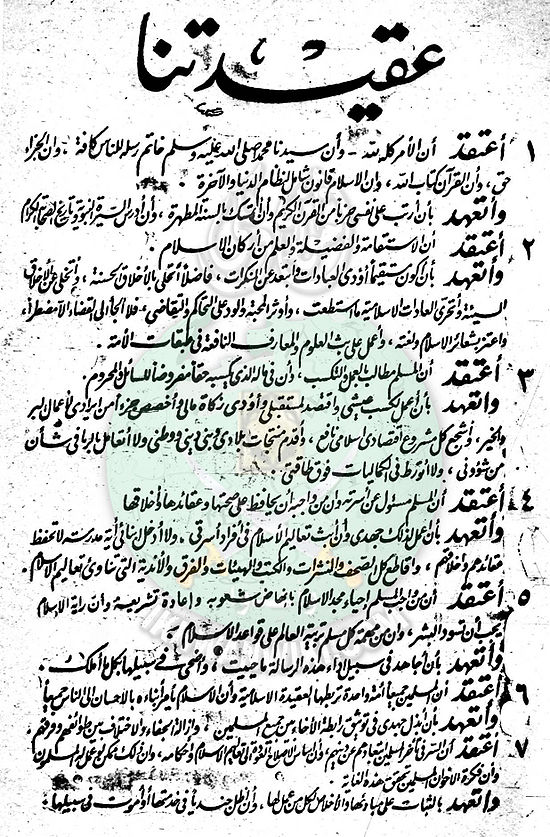 عقيدتنا
١ أعتقد أن الأمر كله لله - وأن سيدنا محمد صلى الله عليه وسلم خاتم رسله للناس كافة ، وأن الجزاء
حق ، وأن القرآن كتاب الله ، وأن الاسلام قانون شامل لنظام الدنيا والآخرة .
وأتعهد بأن أرتب على نفسى حزءا من القرآن الكريم وأن أتمسك بالسنة المطهرة ، وأن أدرس السيرة النبوية وتاريخ الصحابة الكرام
٢ أعتقد أن الاستقامة والفضيلة والعلم من أركان الاسلام .
وأتعهد بأن أكون مستقيما أؤدى العبادات وأبتعد عن المنكرات ، فاضلا أتحلى بالأخلاق الحسنة ، وأتخلى عن الأخلاق
السيئة وأتحرى العادات الاسلامية ما استطعت ، وأوثر المحبة والود على التحاكم والتقاضى ، فلا ألجأ الى القضاء الا مضطرا ،
وأعتز بشعائر الاسلام ولغته ، وأعمل على بث العلوم والمعارف النافعة فى طبقات الأمة .
٣ أعتقد أن المسلم مطالب بالعمل والتكسب ، وأن فى ماله الذى يكسبه حقا مفروضا للسائل والمحروم .
وأتعهد بأن أعمل لكسب عيشى وأقتصد لمستقبلى وأؤدى زكاة مالى وأخصص جزءا من ايرادى لأعمال البر
والخير ، وأشجع كل مشروع اقتصادى اسلامى نافع ، وأقدم منتجات بلادى وبنى دينى ووطنى ولا أتعامل بالربا فى شأن
من شؤونى ، ولا أتورط فى الكماليات فوق طاقتى .
٤ أعتقد أن المسلم مسئول عن أسرته وأن من واجبه أن يحافظ على صحتها وعقائدها وأخلاقها
وأتعهد بأن أعمل لذلك جهدى وأن أبث تعاليم الاسلام فى أفراد أسرتى ، ولا أدخل أبنائى أية مدرسة لا تحفظ
عقائدهم وأخلاقهم ، وأقاطع كل الصحف والنشرات والكتب والهيئات والفرق والأندية التى تناوئ تعاليم الاسلام .
٥ أعتقد أن من واجب المسلم احياء مجد الاسلام بانهاض شعوبه وإعادة تشريعه وأن راية الاسلام
يجب أن تسود البشر ، وأن من مهمة كل مسلم تربية العالم على قواعد الاسلام .
وأتعهد بأن أجاهد فى سبيل أداء هذه الرسالة ما حييت ، وأضحى فى سبيلها بكل ما أملك .
٦ أعتقد أن المسلمين جميعا أمة واحدة تربطها العقيدة الاسلامية وأن الاسلام يأمر أبناءه بالاحسان الى الناس جميعا
وأتعهد بأن أبذل جهدى فى توثيق رابطة الأخاء بين جميع المسلمين ، وازالة الجفاء والاختلاف بين طوائفهم وفرقهم .
٧ أعتقد أن السر فى تأخر المسلمين ابتعادهم عن دينهم ، وأن أساس الاصلاح العودة الى تعاليم الاسلام وأحكامه ، وأن ذلك ممكن لو عمل له المسلمون
وأن فكرة الاخوان المسلمين تحقق هذه الغاية .
وأتعهد بالثبات على مبادئها والأخلاص لكل من عمل لها ، وأن أظل جنديا فى خدمتها أو أموت فى سبيلها .